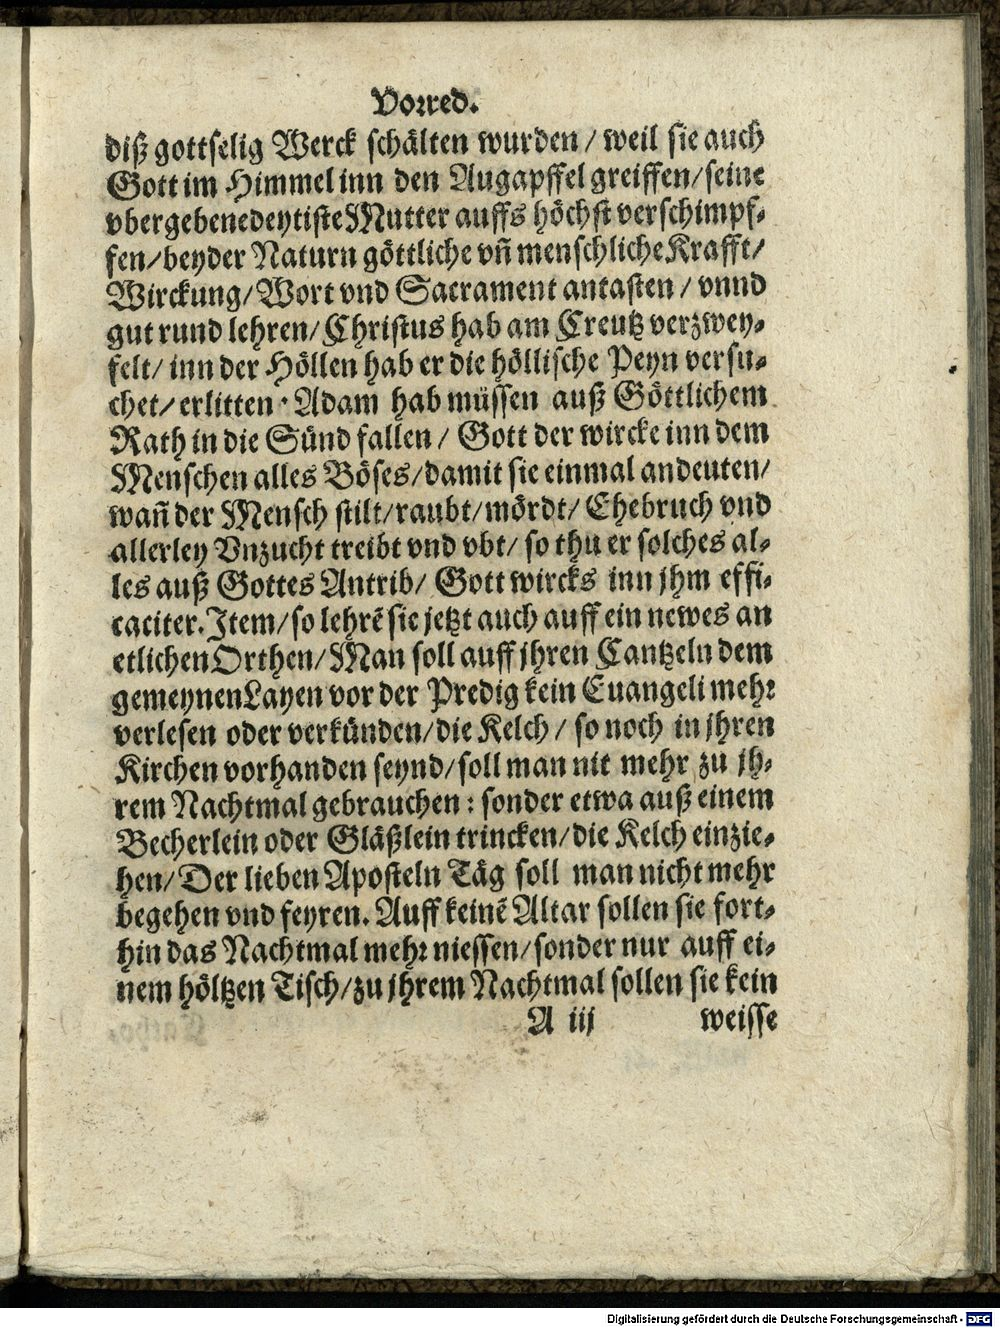 Vorred.
diß gottselig Werck schälten wurden / weil sie auch
Gott im Himmel inn den Augapffel greiffen / seine
vbergebenedeytiste Mutter auffs höchst verschimpf-
fen / beyder Naturn göttliche vñ menschliche Krafft /
Wirckung / Wort vnd Sacrament antasten / vnnd
gut rund lehren / Christus hab am Creutz verzwey-
felt / inn der Höllen hab er die höllische Peyn versu-
chet / erlitten. Adam hab müssen auß Göttlichem
Rath in die Sünd fallen / Gott der wircke inn dem
Menschen alles Böses / damit sie einmal andeuten /
wañ der Mensch stilt / raubt / mördt / Ehebruch vnd
allerley Vnzucht treibt vnd vbt / so thu er solches al-
les auß Gottes Antrib / Gott wircks inn jhm effi-
caciter. Item / so lehrẽ sie jetzt auch auff ein newes an
etlichen Orthen / Man soll auff jhren Cantzeln dem
gemeynen Layen vor der Predig kein Euangeli mehr
verlesen oder verkünden / die Kelch / so noch in jhren
Kirchen vorhanden seynd / soll man nit mehr zu jh-
rem Nachtmal gebrauchen : sonder etwa auß einem
Becherlein oder Gläßlein trincken / die Kelch einzie-
hen / Der lieben Aposteln Täg soll man nicht mehr
begehen vnd feyren. Auff keinẽ Altar sollen sie fort-
hin das Nachtmal mehr niessen / sonder nur auff ei-
nem höltzen Tisch / zu jhrem Nachtmal sollen sie kein
A iij weisse
Digitalisierung gefördert durch die Deutsche Forschungsgemeinschaft - DFG